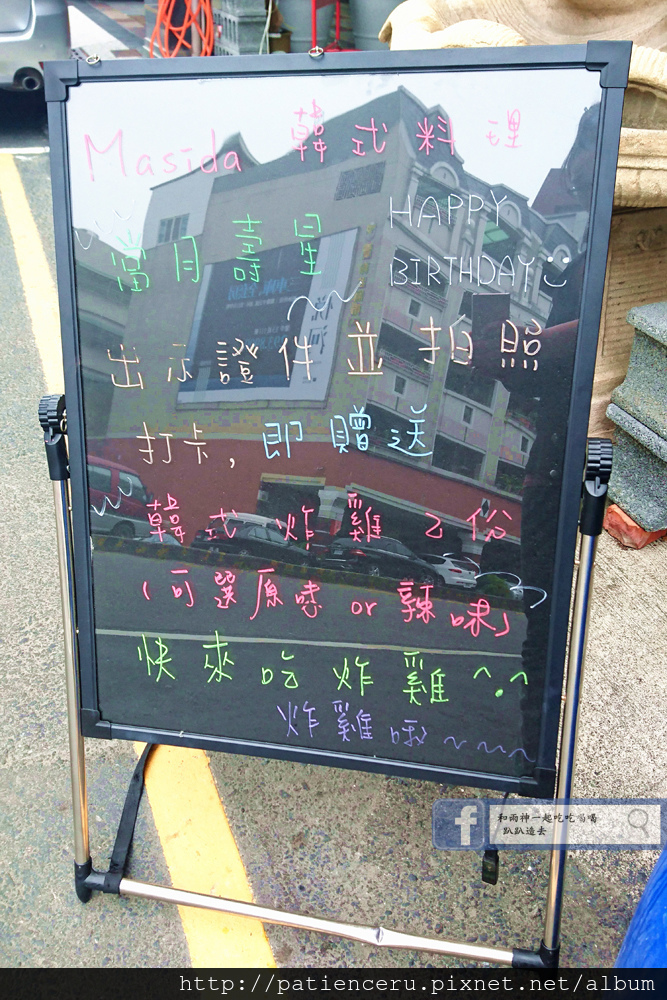 Masida 韓式料理
當月壽星 HAPPY
BIRTHDAY
出示證件並拍照
打卡,即贈送
韓式炸雞乙份
(可選原味 or 辣味)
快來吃炸雞^.^
炸雞哦~~~~
和雨神一起吃吃喝喝
趴趴造去
http://patienceru.pixnet.net/album